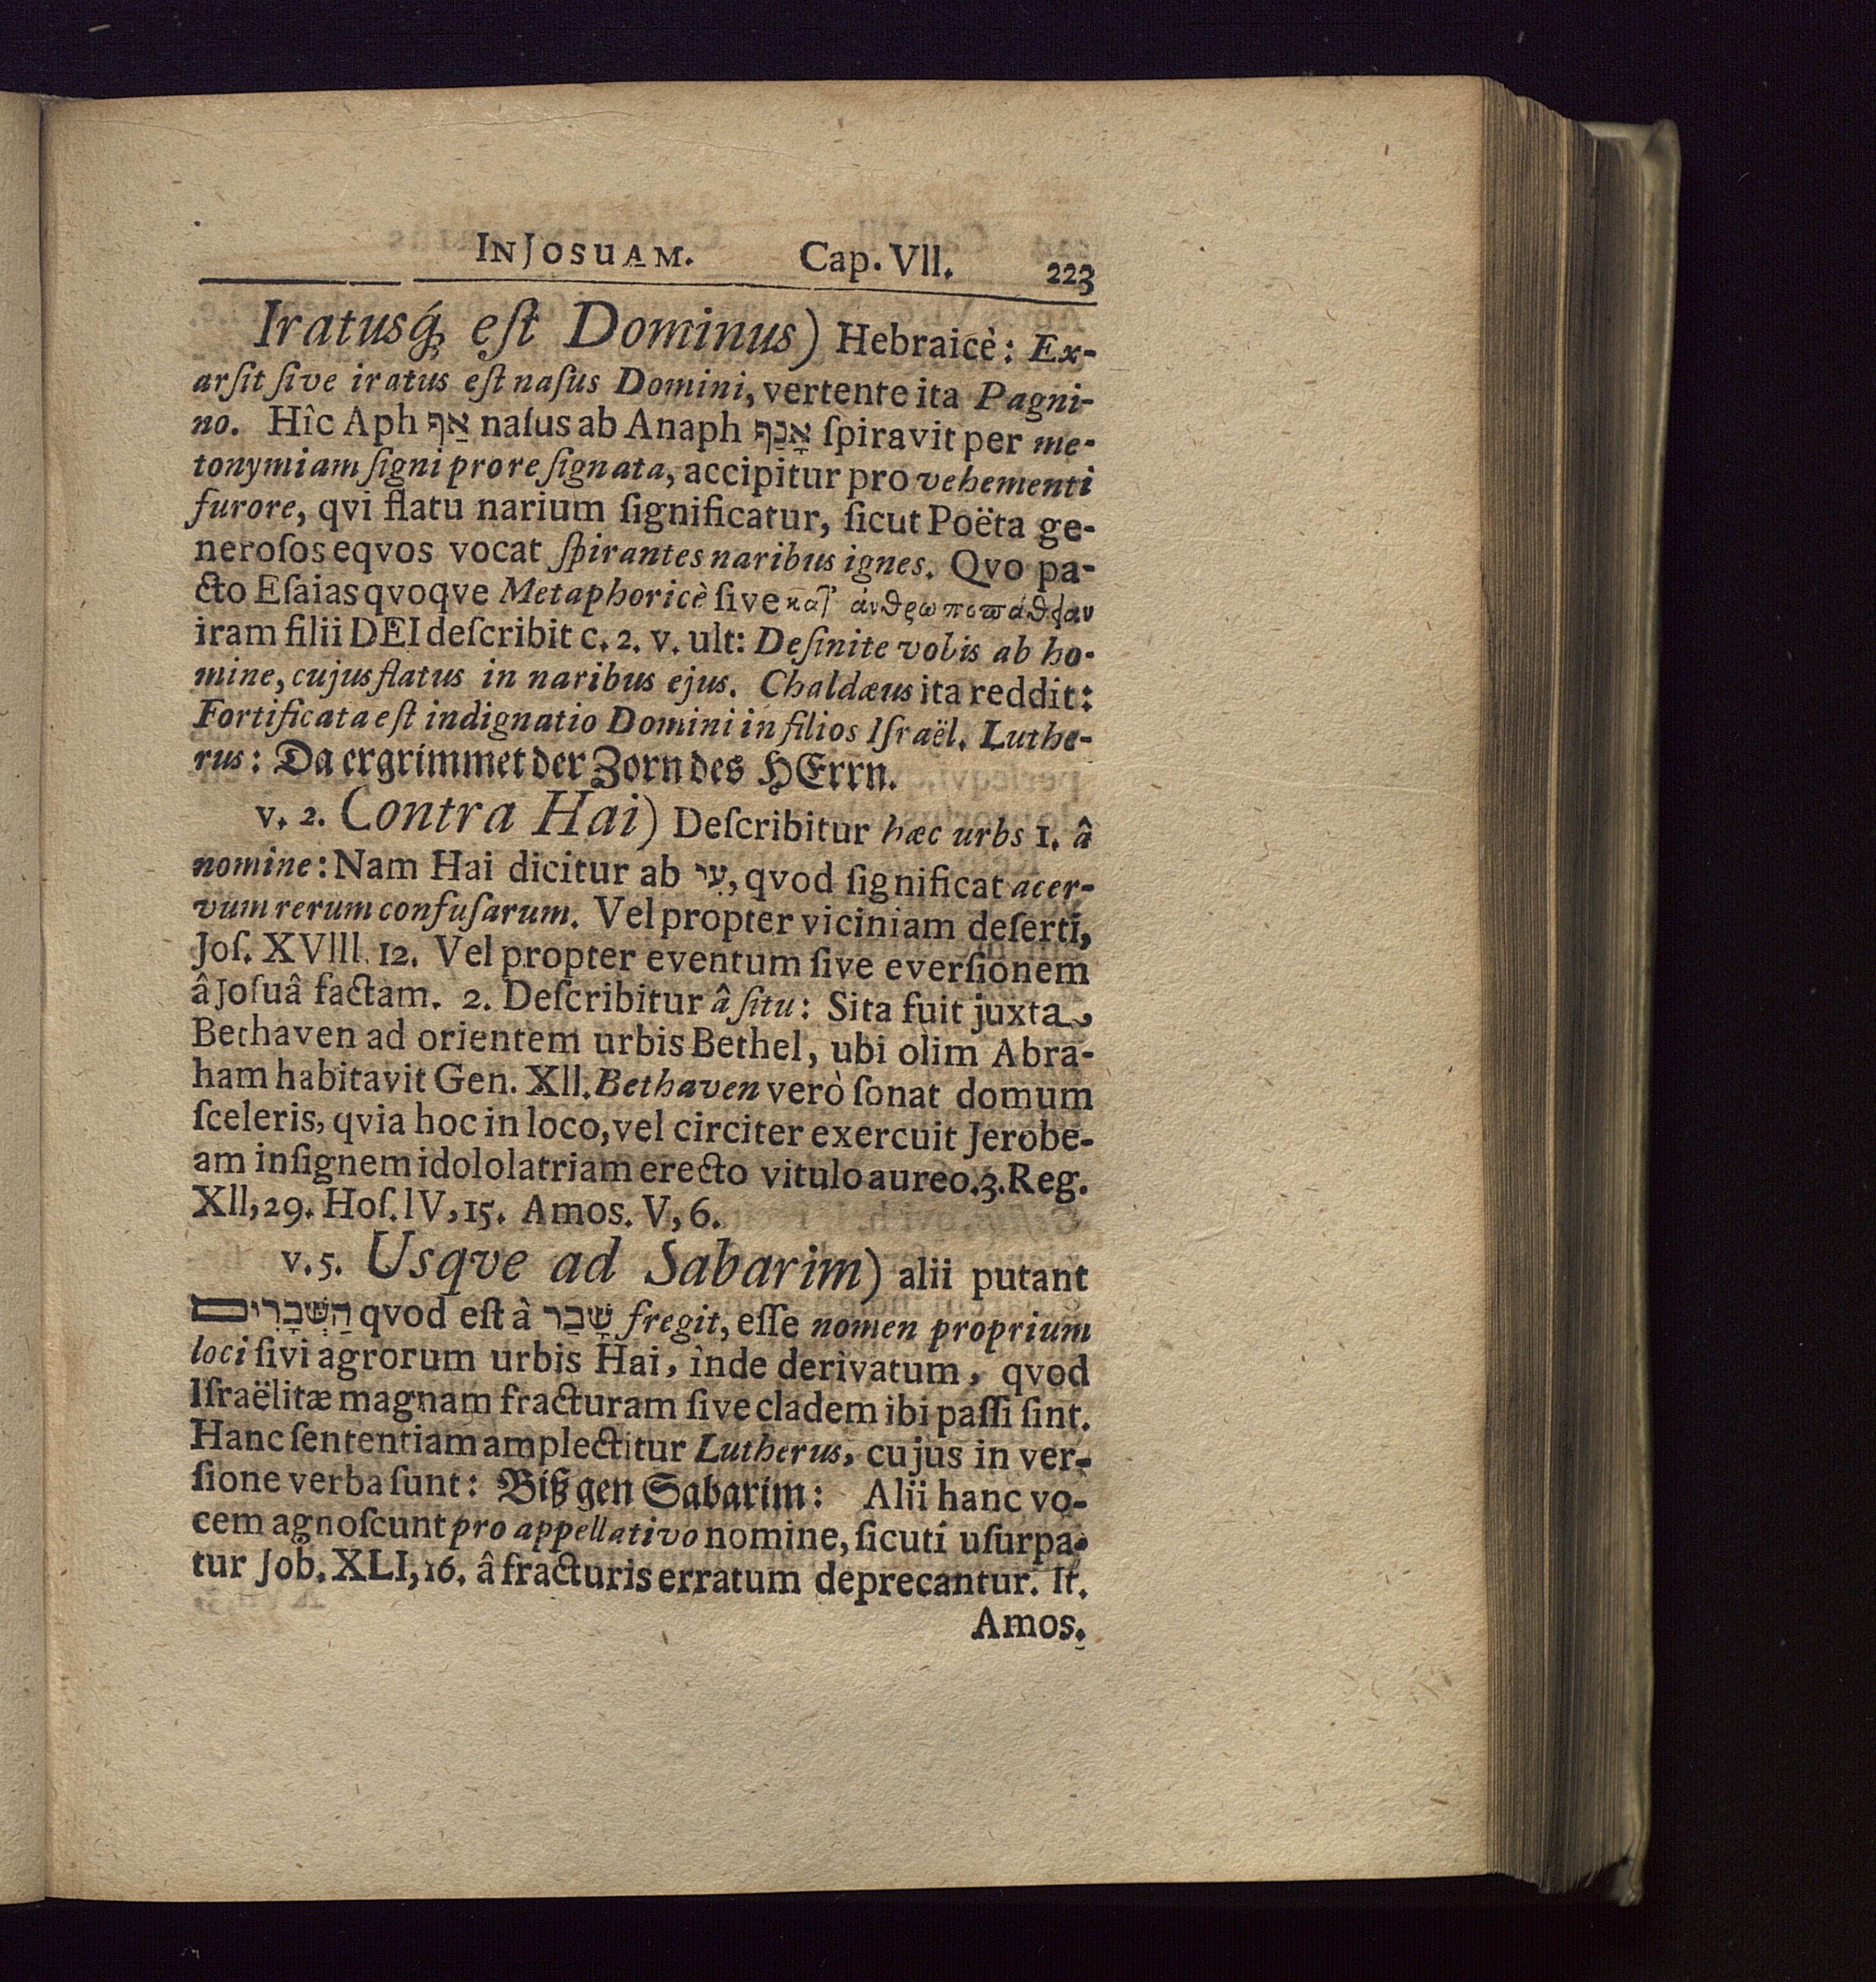 IN JOSUAM. Cap. VII. 223
Iratusq́; eſt Dominus) Hebraicè: Ex-
arſit ſive iratus eſt naſus Domini, vertente ita Pagni-
no. Hîc Aph אַף naſus ab Anaph אָנַף ſpiravit per me-
tonymiam ſigni pro re ſignata, accipitur pro vehementi
furore, qvi flatu narium ſignificatur, ſicut Poëta ge-
neroſos eqvos vocat ſpirantes naribus ignes. Qvo pa-
cto Eſaias qvoqve Metaphoricè ſive κατ' ἀνθρωποπάθειαν
iram filii DEI deſcribit c. 2. v. ult: Deſinite vobis ab ho-
mine, cujus flatus in naribus ejus. Chaldæus ita reddit:
Fortificata eſt indignatio Domini in filios Iſraël. Luthe-
rus: Da ergrimmet der Zorn des HErrn.
v. 2. Contra Hai) Deſcribitur hæc urbs 1. â
nomine: Nam Hai dicitur ab עִי, qvod ſignificat acer-
vum rerum confuſarum. Vel propter viciniam deſerti,
Joſ. XVIII. 12. Vel propter eventum ſive everſionem
â Joſuâ factam. 2. Deſcribitur â ſitu: Sita fuit juxta
Bethaven ad orientem urbis Bethel, ubi olim Abra-
ham habitavit Gen. XII. Bethaven verò ſonat domum
ſceleris, qvia hoc in loco, vel circiter exercuit Jerobe-
am inſignem idololatriam erecto vitulo aureo. 3. Reg.
XII, 29. Hoſ. IV, 15. Amos. V, 6.
v. 5. Usqve ad Sabarim) alii putant
הַשְּׁבָרִים qvod eſt â שָׁבַר fregit, eſſe nomen proprium
loci ſivi agrorum urbis Hai, inde derivatum, qvod
Iſraëlitæ magnam fracturam ſive cladem ibi paſſi ſint.
Hanc ſententiam amplectitur Lutherus, cujus in ver-
ſione verba ſunt: Biß gen Sabarim: Alii hanc vo-
cem agnoſcunt pro appellativo nomine, ſicuti uſurpa-
tur Job. XLI, 16. â fracturis erratum deprecantur. It.
Amos.